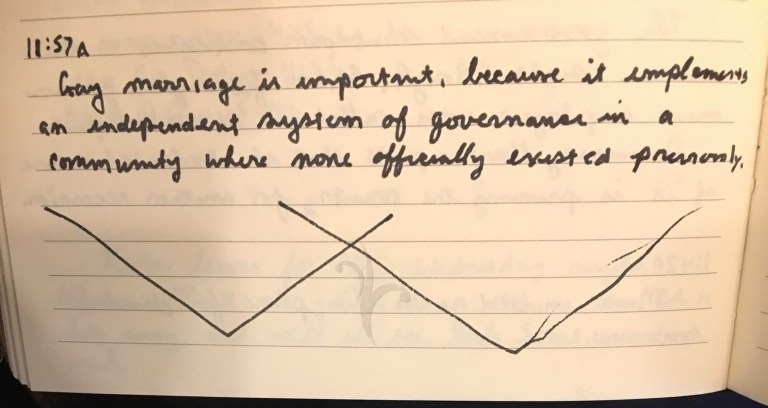 11:57A
Gay marriage is important, because it implements
an independent system of governance in a
community where none officially existed previously.